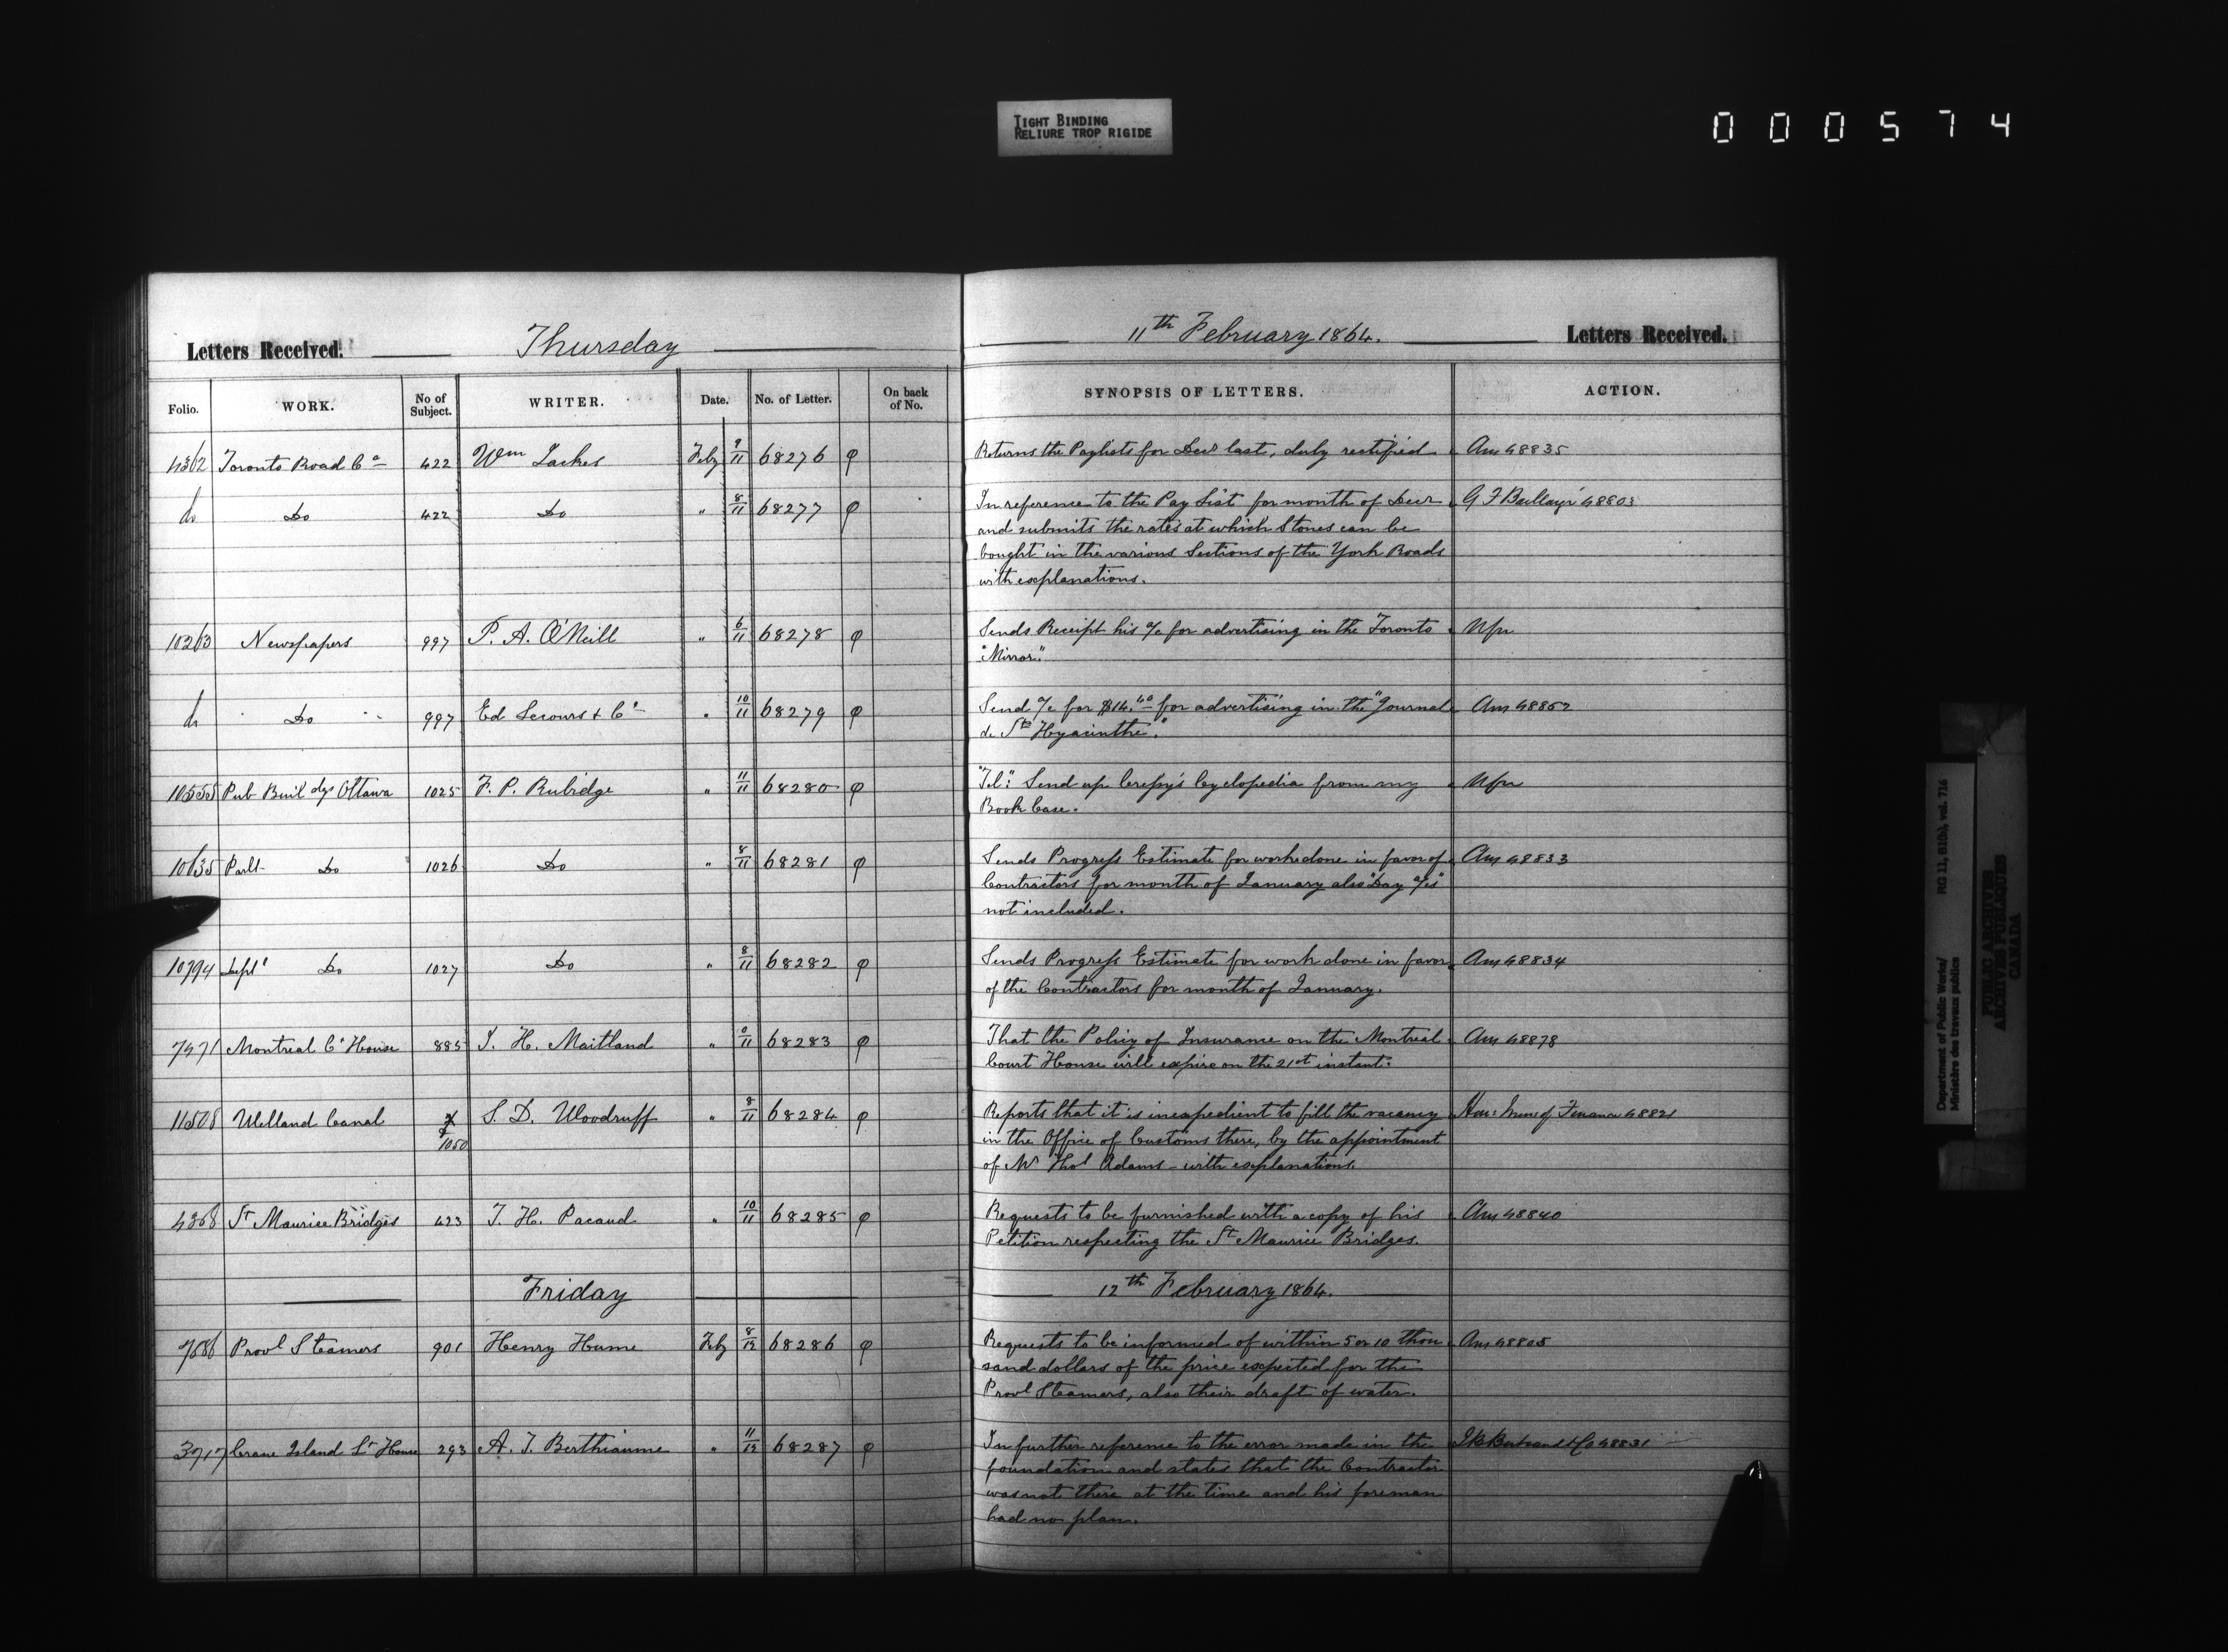 TIGHT BINDING
RELIURE TROP RIGIDE
000574
Letters Received. Thursday
Folio. WORK. No of Subject. WRITER. Date. No. of Letter. On back of No.
4362 Toronto Road Co 422 Wm Lackes Feby 9/11 68276
do Do 422 Do " 8/11 68277
10263 Newspapers 997 P. A. O'Neill " 6/11 68278
do Do 997 Ed Lecours & Co " 10/11 68279
10555 Pub Buildgs Ottawa 1025 F. P. Rubidge " 11/11 68280
10635 Parlt Do 1026 Do " 8/11 68281
10794 Deptl Do 1027 Do " 8/11 68282
7471 Montreal Ct House 885 J. H. Maitland " 0/11 68283
11508 Welland Canal 1050 S. D. Woodruff " 8/11 68284
4368 St Maurice Bridges 423 J. H. Pacaud " 10/11 68285
Friday
7686 Provl Steamers 901 Henry Hume Feby 8/12 68286
3717 Crane Island Lt House 293 A. J. Berthiaume " 11/12 68287
11th February 1864. Letters Received.
SYNOPSIS OF LETTERS. ACTION.
Returns the Paylists for Decr last, duly rectified Ans 48835
In reference to the Pay List for month of Decr G F Baillairgé 48803
and submits the rates at which Stones can be
bought in the various Sections of the York Roads
with explanations.
Sends Receipt his a/c for advertising in the Toronto Nfn
"Mirror."
Send a/c for $14.40 for advertising in the "Journal Ans 48852
de St Hyacinthe."
"Tel": Send up Cresy's Cyclopedia from my Nfn
Book Case.
Sends Progress Estimate for work done in favor of Ans 48833
Contractors for month of January also "Day a/cs"
not included.
Sends Progress Estimate for work done in favor Ans 48834
of the Contractors for month of January.
That the Policy of Insurance on the Montreal Ans 48878
Court House will expire on the 21st instant.
Reports that it is inexpedient to fill the vacancy Hon: of Finance 48821
in the Office of Customs there, by the appointment
of Mr Thos Adams - with explanations.
Requests to be furnished with a copy of his Ans 48840
Petition respecting the St Maurice Bridges.
12th February 1864.
Requests to be informed of within 5 or 10 thou Ans 48805
sand dollars of the price expected for the
Provl Steamers, also their draft of water.
In further reference to the error made in the J B Bertrand & Co 48831
foundation and states that the Contractor
was not there at the time and his foreman
had no plan.
Department of Public Works/ RG 11, B1(b), vol. 716
Ministère des travaux publics
PUBLIC ARCHIVES
ARCHIVES PUBLIQUES
CANADA